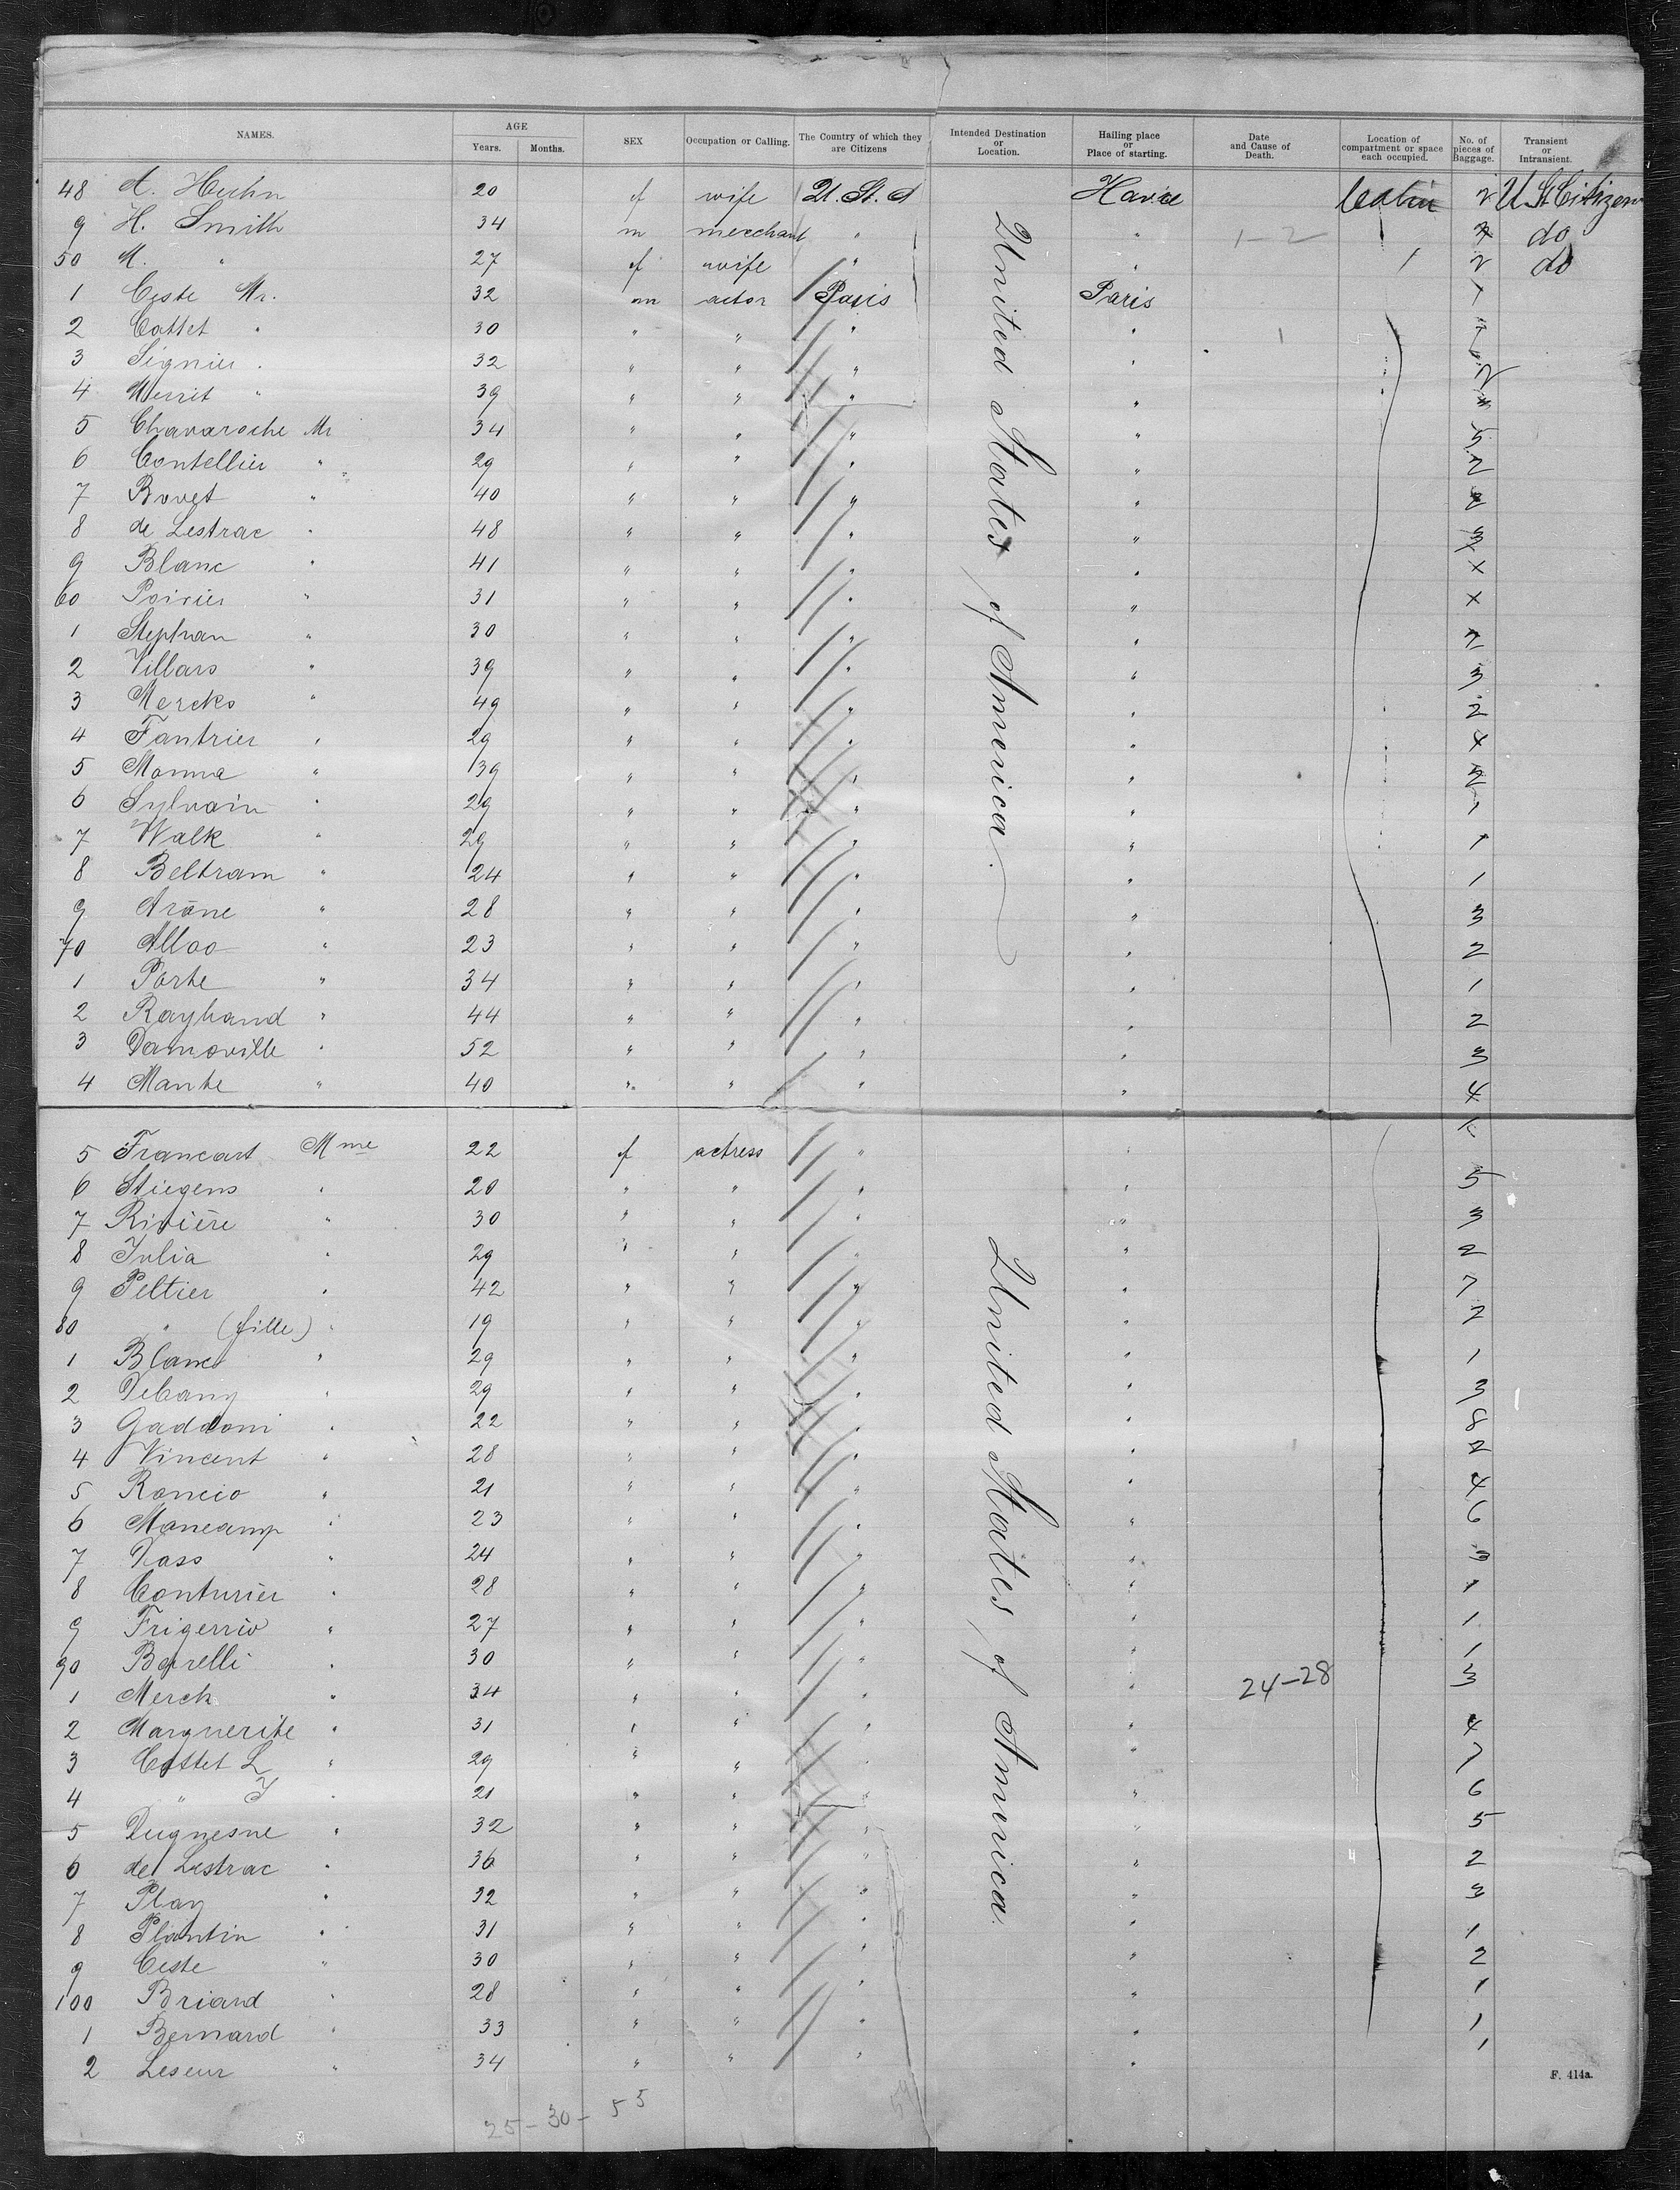 NAMES. AGE Years. Months. SEX Occupation or Calling. The Country of which they are Citizens Intended Destination or Location. Hailing place or Place of starting. Date and Cause of Death. Location of compartment or space each occupied. No. of pieces of Baggage. Transient or Intransient.
48 A. Huhn 20 f wife U. St. A Havre Cabin 2 U St Citizen
9 H. Smith 34 m merchant " " 1-2 do
50 M. " 27 f wife " " 1 2 do
1 Ceste Mr. 32 m actor Paris Paris 1
2 Cottet " 30 " " " "
3 Signier " 32 " " " " 2
4 Merrit " 39 " " " "
5 Chavaroche Mr 34 " " " " 5
6 Contellier " 29 " " " " 2
7 Bovet " 40 " " " "
8 de Lestrac " 48 " " " " 3
9 Blanc " 41 " " " " x
60 Poirier " 31 " " " " x
1 Stephan " 30 " " " "
2 Villars " 39 " " " " 3
3 Mercks " 49 " " " " 2
4 Fantrier " 29 " " " " 4
5 Monna " 39 " " " "
6 Sylvain " 29 " " " " 1
7 Walk " 29 " " " " 1
8 Beltram " 24 " " " " 1
9 Arône " 28 " " " " 3
70 Alloo " 23 " " " " 2
1 Porte " 34 " " " " 1
2 Raybaud " 44 " " " " 2
3 Damoville " 52 " " " " 3
4 Mante " 40 " " " " 4
United States of America.
5 Francart Mme 22 f actress " "
6 Stiegens " 20 " " " " 5
7 Rivière " 30 " " " " 3
8 Julia " 29 " " " " 2
9 Peltier " 42 " " " " 7
80 " (fille) " 19 " " " " 2
1 Blanc " 29 " " " " 1
2 Debany " 29 " " " " 3
3 Gaddoni " 22 " " " " 8
4 Vincent " 28 " " " " 2
5 Roncio " 21 " " " " 4
6 Moncamp " 23 " " " " 6
7 Dass " 24 " " " " 3
8 Conturier " 28 " " " " 1
9 Frigerrio " 27 " " " " 1
90 Borelli " 30 " " " " 1
1 Merck " 34 " " " " 24-28 3
2 Marguerite " 31 " " " " 4
3 Cottet L " 29 " " " " 7
4 " J " 21 " " " " 6
5 Duqnesne " 32 " " " " 5
6 de Lestrac " 36 " " " " 2
7 Play " 32 " " " " 3
8 Plantin " 31 " " " " 1
9 Ceste " 30 " " " " 2
100 Briand " 28 " " " " 1
1 Bernard " 33 " " " " 1
2 Leseur " 34 " " " " 1
United States of America.
F. 414a.
25-30-55